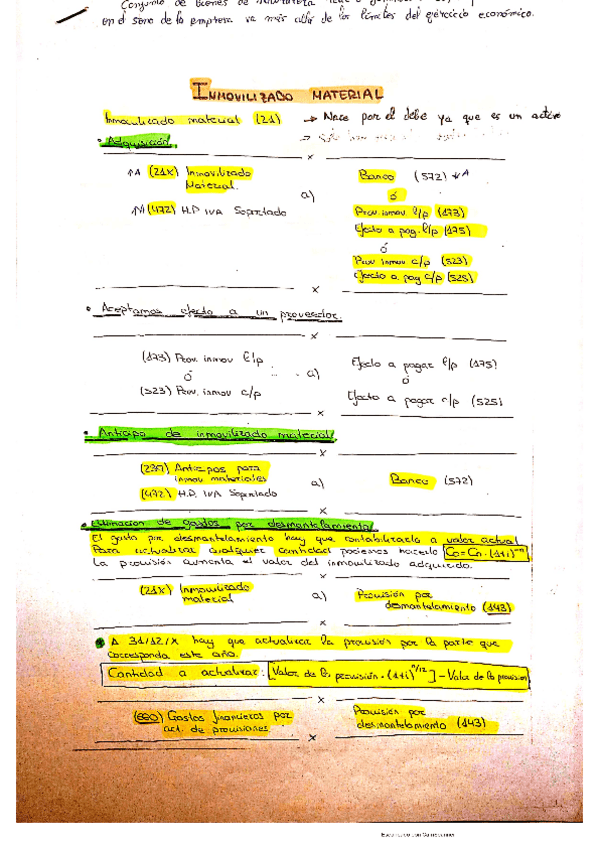 Conjunto de bienes de naturaleza
en el seno de la empresa va más allá de los límites del ejercicio económico.
INMOVILIZADO MATERIAL
Inmovilizado material (21) → Nace por el debe ya que es un activo
• Adquisición.
x
↑A (21X) Inmovilizado Material.
↑N (472) H.P. IVA Soportado
a)
Banco (572) ↓A
ó
Prov. inmov. l/p (173)
Efecto a pag. l/p (175)
ó
Prov. inmov c/p (523)
Efecto a pag c/p (525)
x
• Aceptamos efecto a un proveedor.
x
(173) Prov. inmov l/p
ó
(523) Prov. inmov c/p
a)
Efecto a pagar l/p (175)
ó
Efecto a pagar c/p (525)
x
• Anticipo de inmovilizado material
x
(239) Anticipos para inmov. materiales
(472) H.P. IVA Soportado
a)
Banco (572)
x
• Estimación de gastos por desmantelamiento
El gasto por desmantelamiento hay que contabilizarlo a valor actual
Para actualizar cualquier cantidad podemos hacerlo Co = Cn · (1+i)⁻ⁿ
La provisión aumenta el valor del inmovilizado adquirido.
x
(21X) Inmovilizado material
a)
Provisión por desmantelamiento (143)
x
• A 31/12/X hay que actualizar la provisión por la parte que
corresponda este año.
Cantidad a actualizar: [Valor de la provisión · (1+i)^n/12] - Valor de la provision
x
(660) Gastos financieros por act. de provisiones.
Provisión por desmantelamiento (143)
x